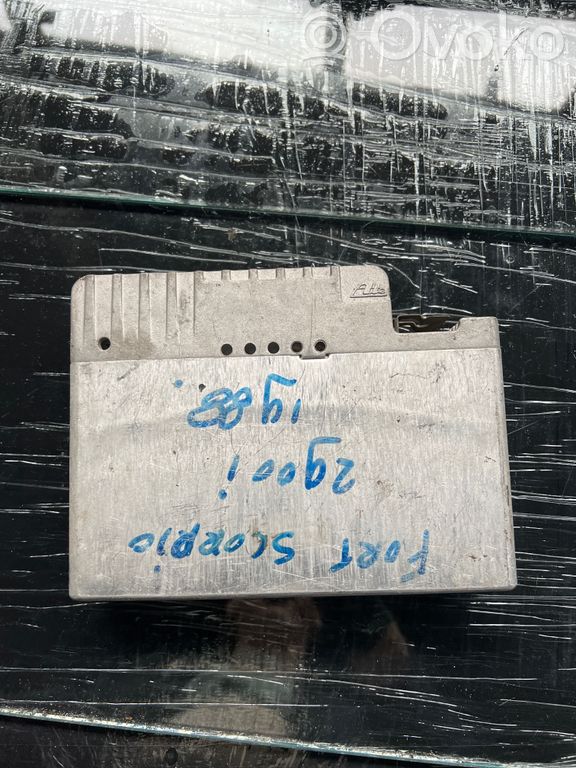 Ovoko
Ate
FORT SCORPIO
2900i
1988